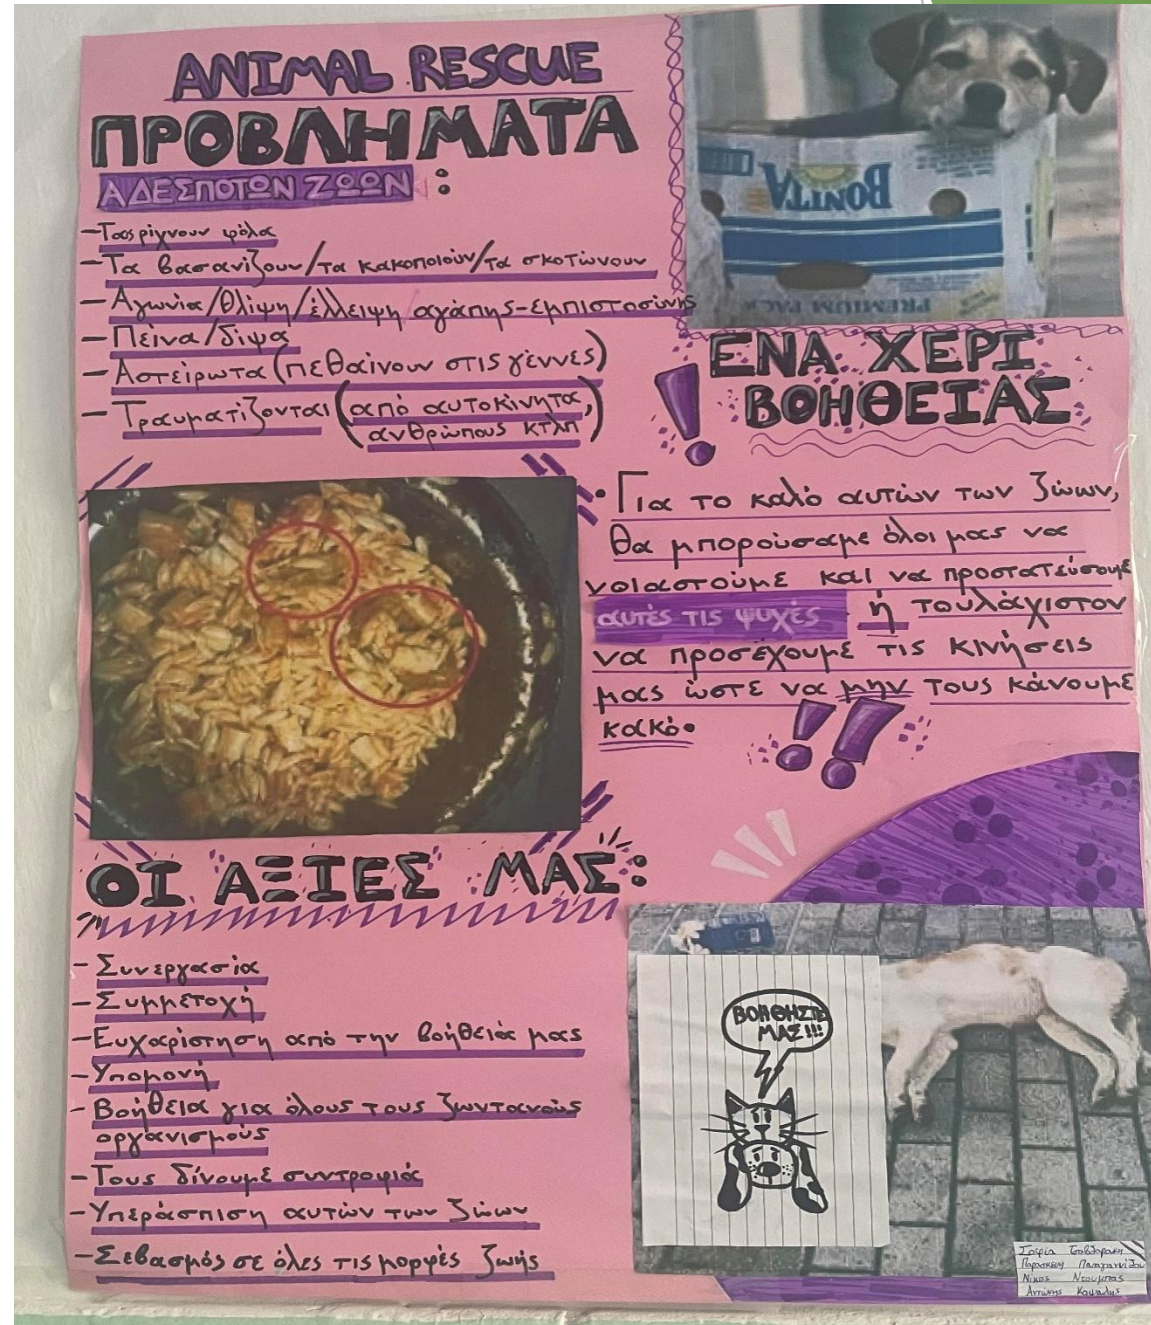 ANIMAL RESCUE
ΠΡΟΒΛΗΜΑΤΑ
ΑΔΕΣΠΟΤΩΝ ΖΩΩΝ :
-Τους ρίχνουν φόλα
-Τα βασανίζουν/τα κακοποιούν/τα σκοτώνουν
-Αγωνία/θλίψη/έλλειψη αγάπης-εμπιστοσύνης
-Πείνα/δίψα
-Αστείρωτα (πεθαίνουν στις γέννες)
-Τραυματίζονται (από αυτοκίνητα,
ανθρώπους κτλπ)
BONITA
PREMIUM PACK
ΕΝΑ ΧΕΡΙ
ΒΟΗΘΕΙΑΣ
!
• Για το καλό αυτών των ζώων,
θα μπορούσαμε όλοι μας να
νοιαστούμε και να προστατεύσουμε
αυτές τις ψυχές ή τουλάχιστον
να προσέχουμε τις κινήσεις
μας ώστε να μην τους κάνουμε
κακό.
!!
ΟΙ ΑΞΙΕΣ ΜΑΣ:
-Συνεργασία
-Συμμετοχή
-Ευχαρίστηση από την βοήθειά μας
-Υπομονή
-Βοήθεια για όλους τους ζωντανούς
οργανισμούς
-Τους δίνουμε συντροφιά
-Υπεράσπιση αυτών των ζώων
-Σεβασμός σε όλες τις μορφές ζωής
ΒΟΗΘΗΣΤΕ
ΜΑΣ!!!
Σοφία
Παρασκευή Παπαγιαννίδου
Νίκος Ντουμπας
Αντώνης